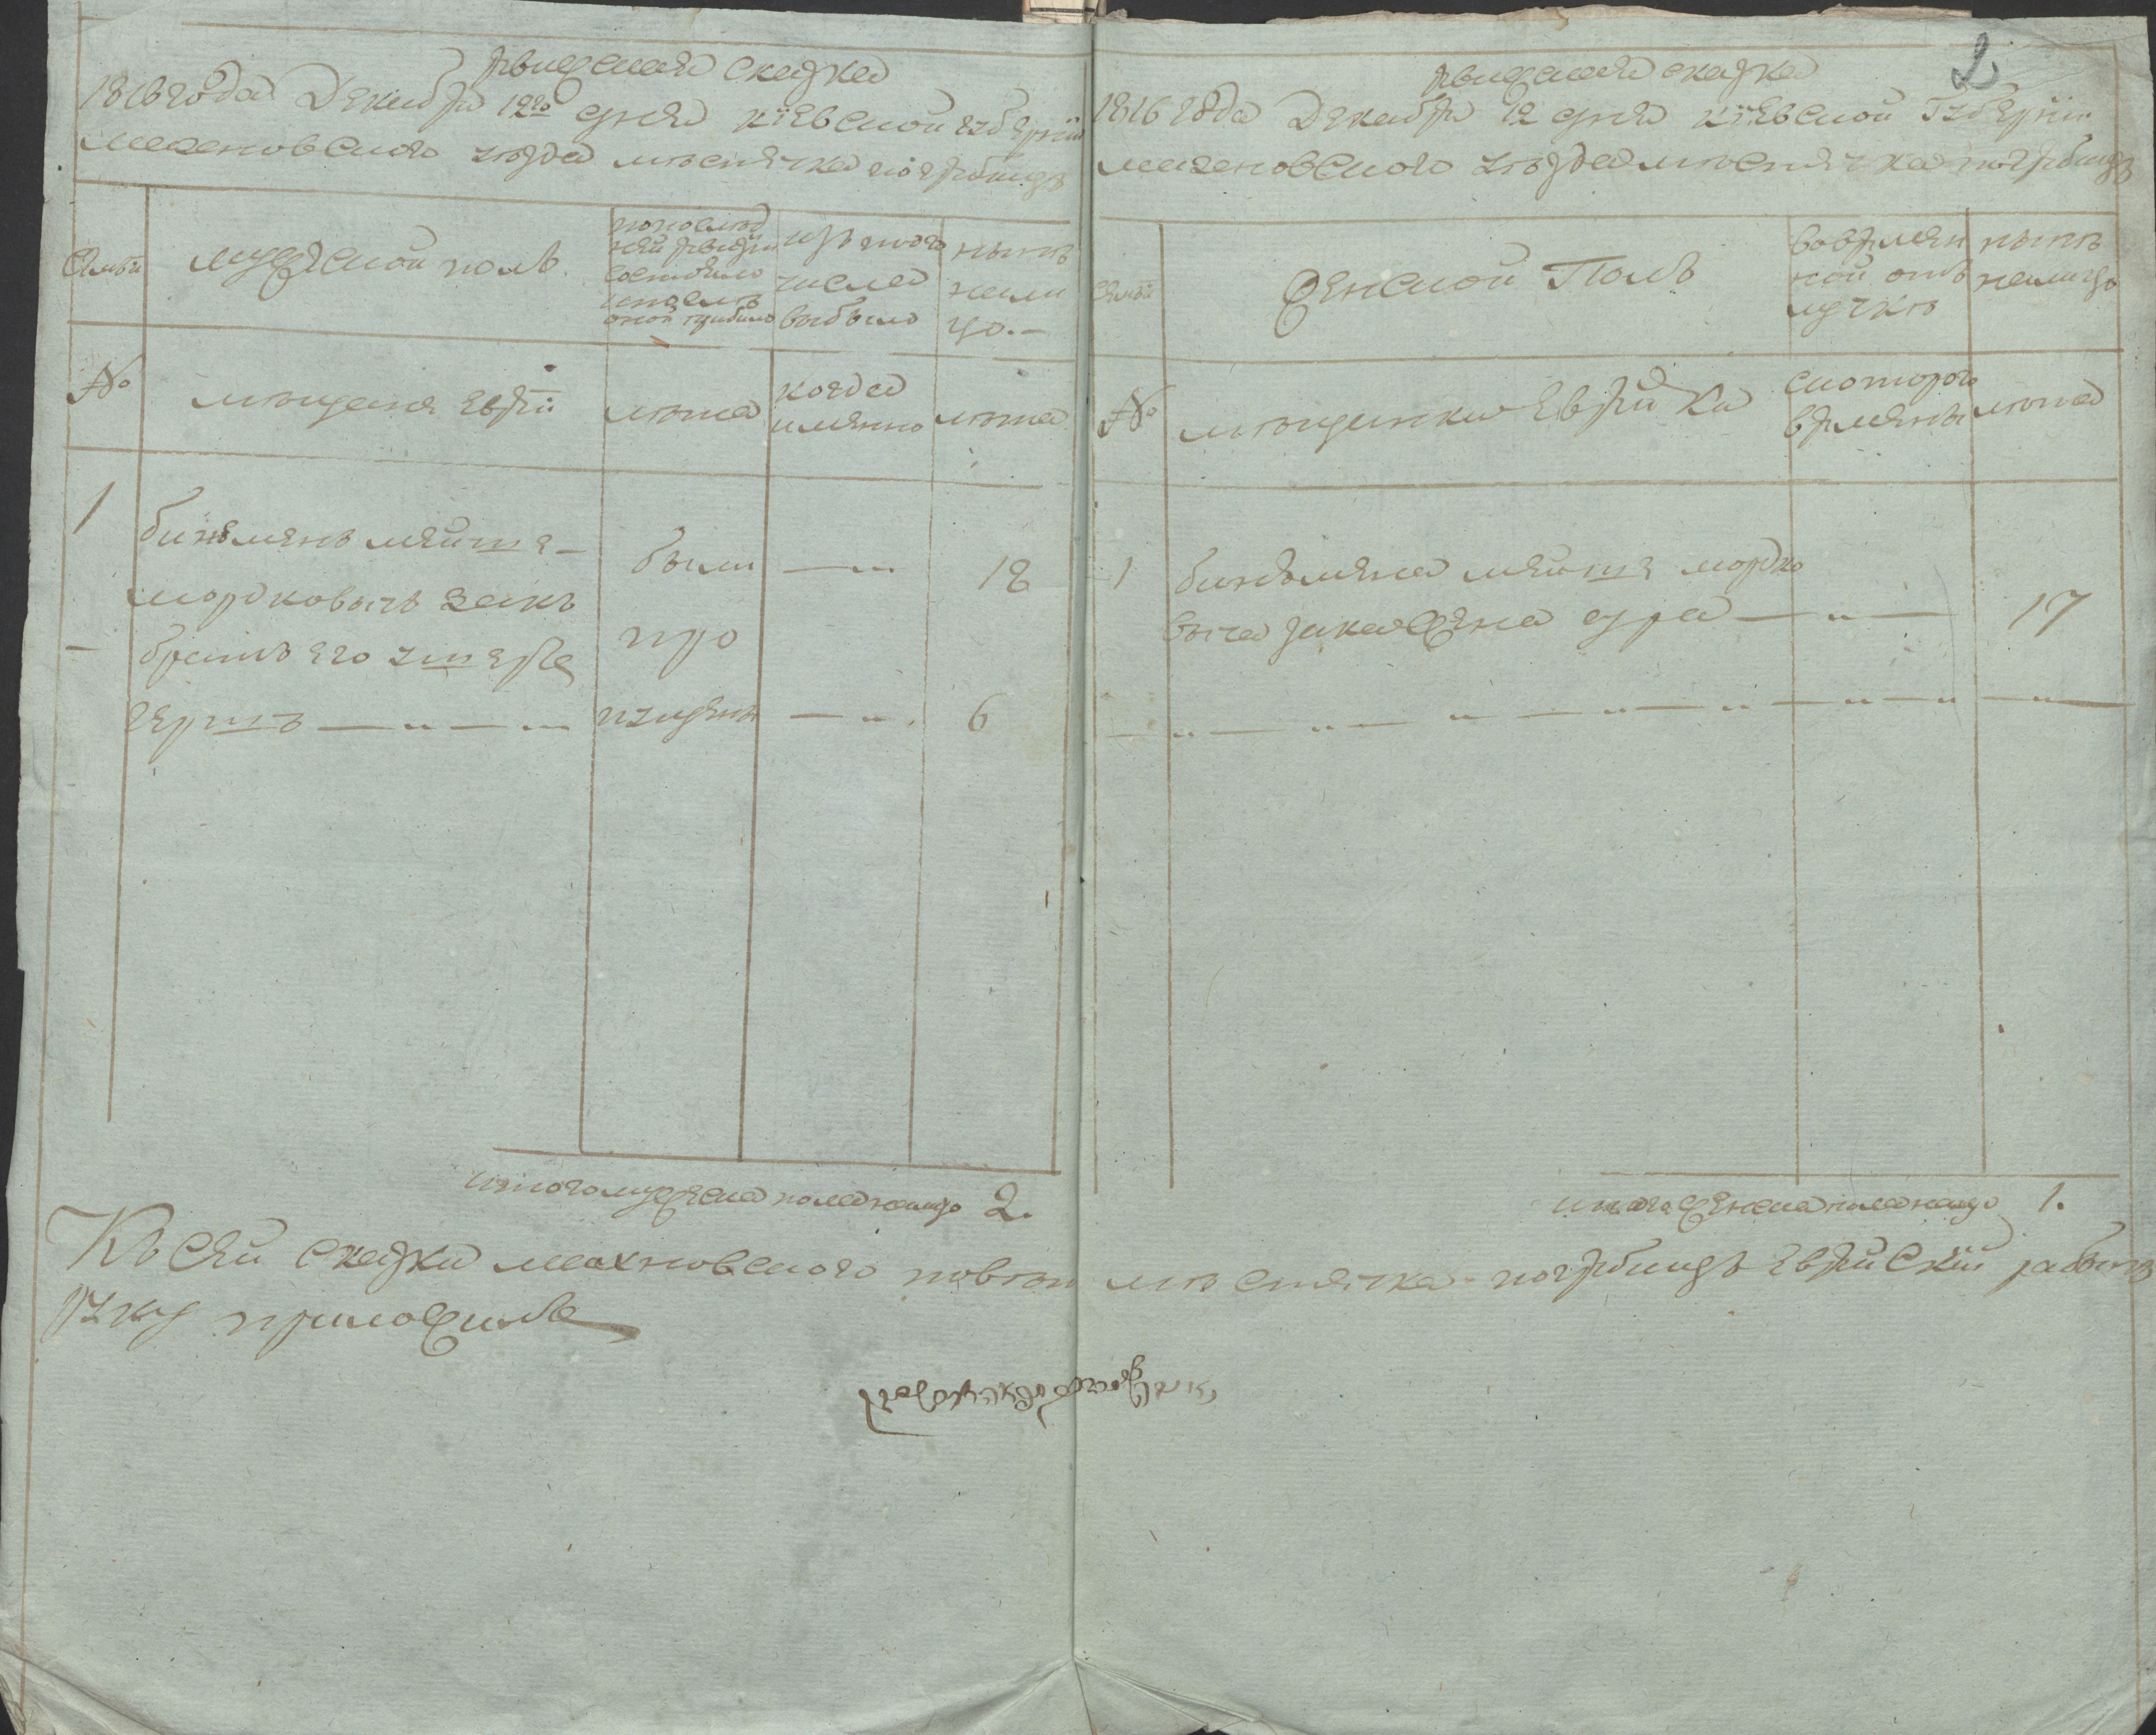 ревизская сказка
1816 года Декабря 12го дня киевской губернии
махновского уезда местечка погребищъ
Семьи
мужеской полъ
по последней ревизии состояло и после оной прибыло
изъ того числа выбыло
ныне налицо.-
№
мещаня евреи
лета
когда имянно
лета
1
биньяминъ
мордковичъ
были — „
18
— братъ его
про
гершъ — „ — „
пущенъ — „
6
итого мужеска пола налицо 2.
2
ревизская сказка
1816 года Декабря 12 дня киевской Губернии
махновского уезда местечка погребищъ
семьи
Женской Полъ
во временной отлучке
ныне налицо
№
мещанки еврейки
с которого времяни
лета
1
биньямена мордко
вича жена сура — „ —
17
— „ — „ — „ — „ — „ — „ — „ —
итога женска пола налицо 1.
Къ сей сказки махновского повета местечка погребищъ еврейский
руку приложилъ